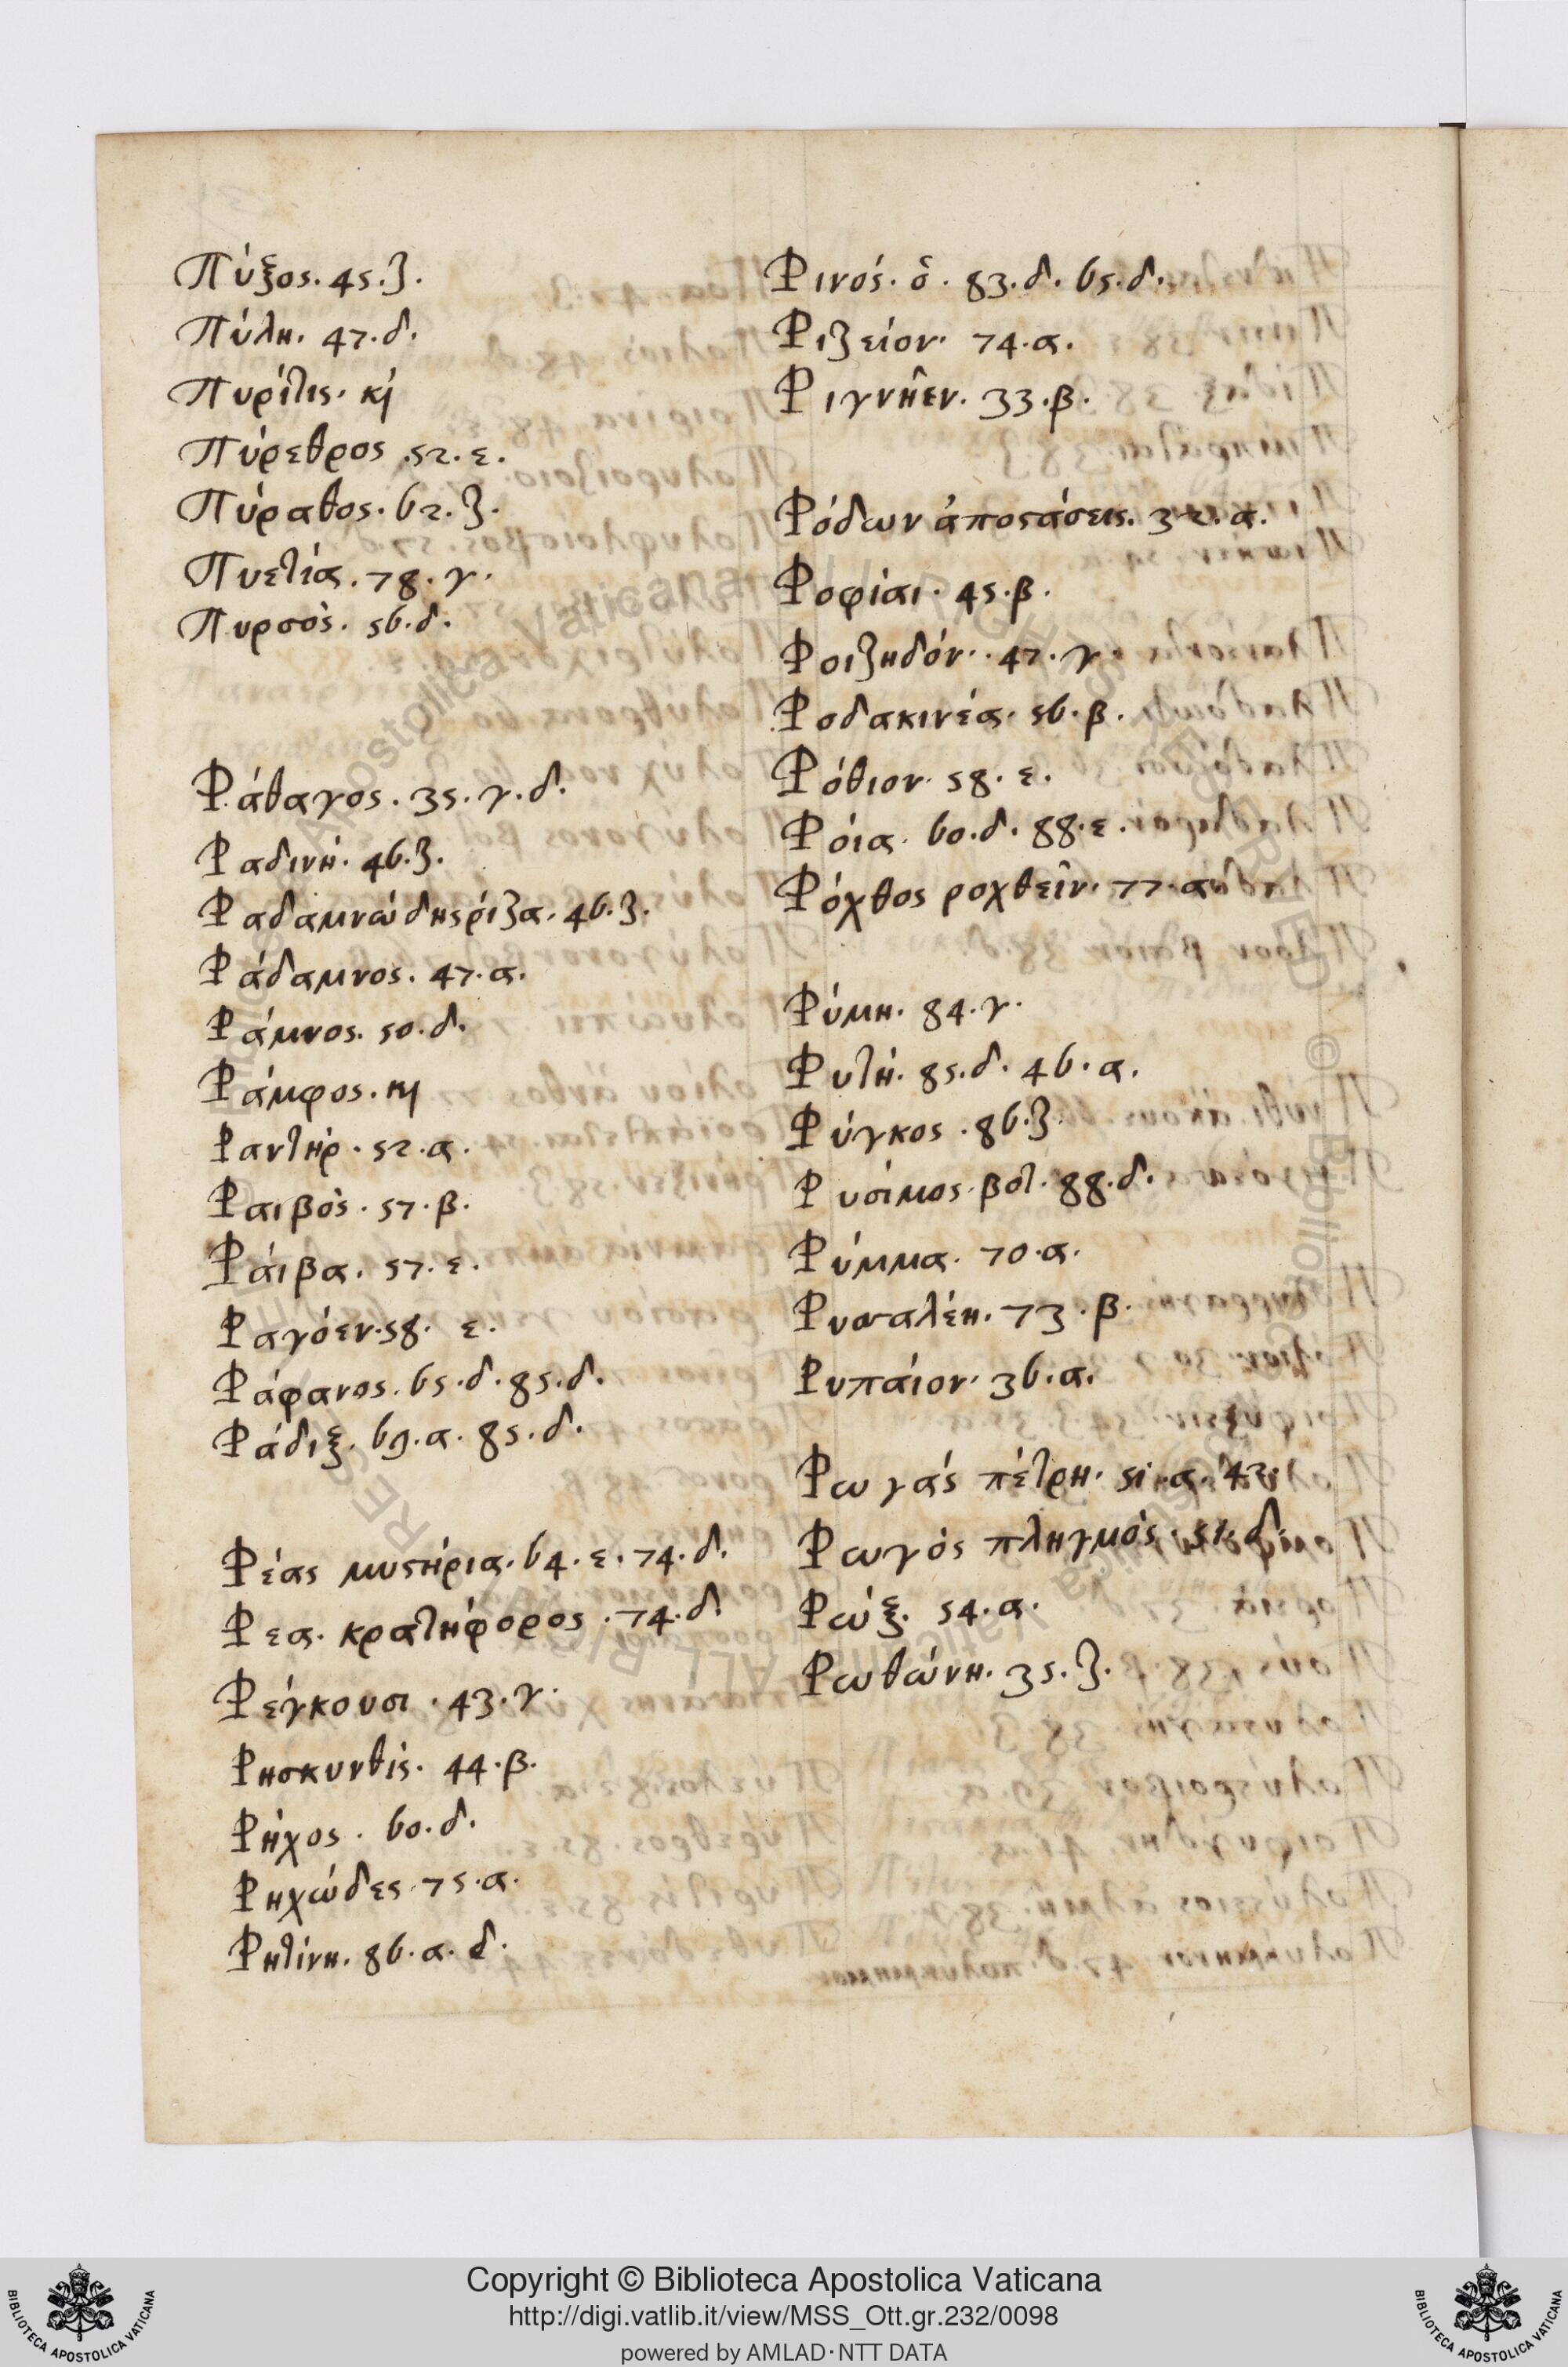 Πύξος. 45. ζ.
Πύλη. 47. δ.
Πυρίτις. κ
Πύρεθρος. 52. ε.
Πύραθος. 62. ζ.
Πυετία. 78. γ.
Πυρσός. 56. δ.
Ῥάθαγος. 35. γ. δ.
Ῥαδινή. 46. ζ.
Ῥαδαμνώδης ρίζα. 46. ζ.
Ῥάδαμνος. 47. α.
Ῥάμνος. 50. δ.
Ῥάμφος.
Ῥαντήρ. 52. α.
Ῥαιβός. 57. β.
Ῥάιβα. 57. ε.
Ῥαγόεν. 58. ε.
Ῥάφανος. 65. δ. 85. δ.
Ῥάδιξ. 69. α. 85. δ.
Ῥέας μυστήρια. 64. ε. 74. δ.
Ῥεα. κρατηφόρος. 74. δ.
Ῥέγκουσι. 43. γ.
Ῥησκυνθίς. 44. β.
Ῥήχος. 60. δ.
Ῥηχώδες. 75. α.
Ῥητίνη. 86. α. δ.
Ῥινός. ὁ. 83. δ. 65. δ.
Ῥιζείον. 74. α.
Ῥιγνῆεν. 33. β.
Ῥόδων ἀποστάσεις. 32. α.
Ῥοφίαι. 45. β.
Ῥοιζηδόν. 47. γ.
Ῥοδακινέα. 56. β.
Ῥόθιον. 58. ε.
Ῥόια. 60. δ. 88. ε.
Ῥόχθος ροχθεῖν. 77. α
Ῥύμη. 84. γ.
Ῥυτή. 85. δ. 46. α.
Ῥύγκος. 86. ζ.
Ῥυσίμος. βοτ. 88. δ.
Ῥύμμα. 70. α.
Ῥυσαλέη. 73. β.
Ῥυπάιον. 36. α.
Ῥωγάς πέτρη. 51. α. 42.
Ῥωγός πληγμός. 51. δ.
Ῥώξ. 54. α.
Ῥωθώνη. 35. ζ.
Copyright © Biblioteca Apostolica Vaticana
http://digi.vatlib.it/view/MSS_Ott.gr.232/0098
powered by AMLAD·NTT DATA
BIBLIOTECA APOSTOLICA VATICANA
BIBLIOTECA APOSTOLICA VATICANA